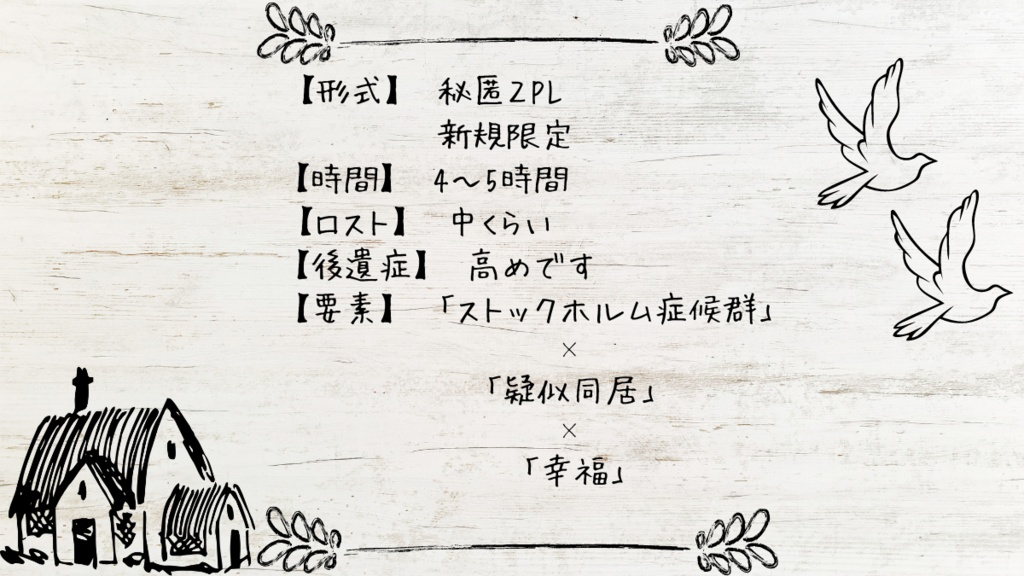 【形式】 秘匿2PL
新規限定
【時間】 4〜5時間
【ロスト】 中くらい
【後遺症】 高めです
【要素】 「ストックホルム症候群」
×
「疑似同居」
×
「幸福」